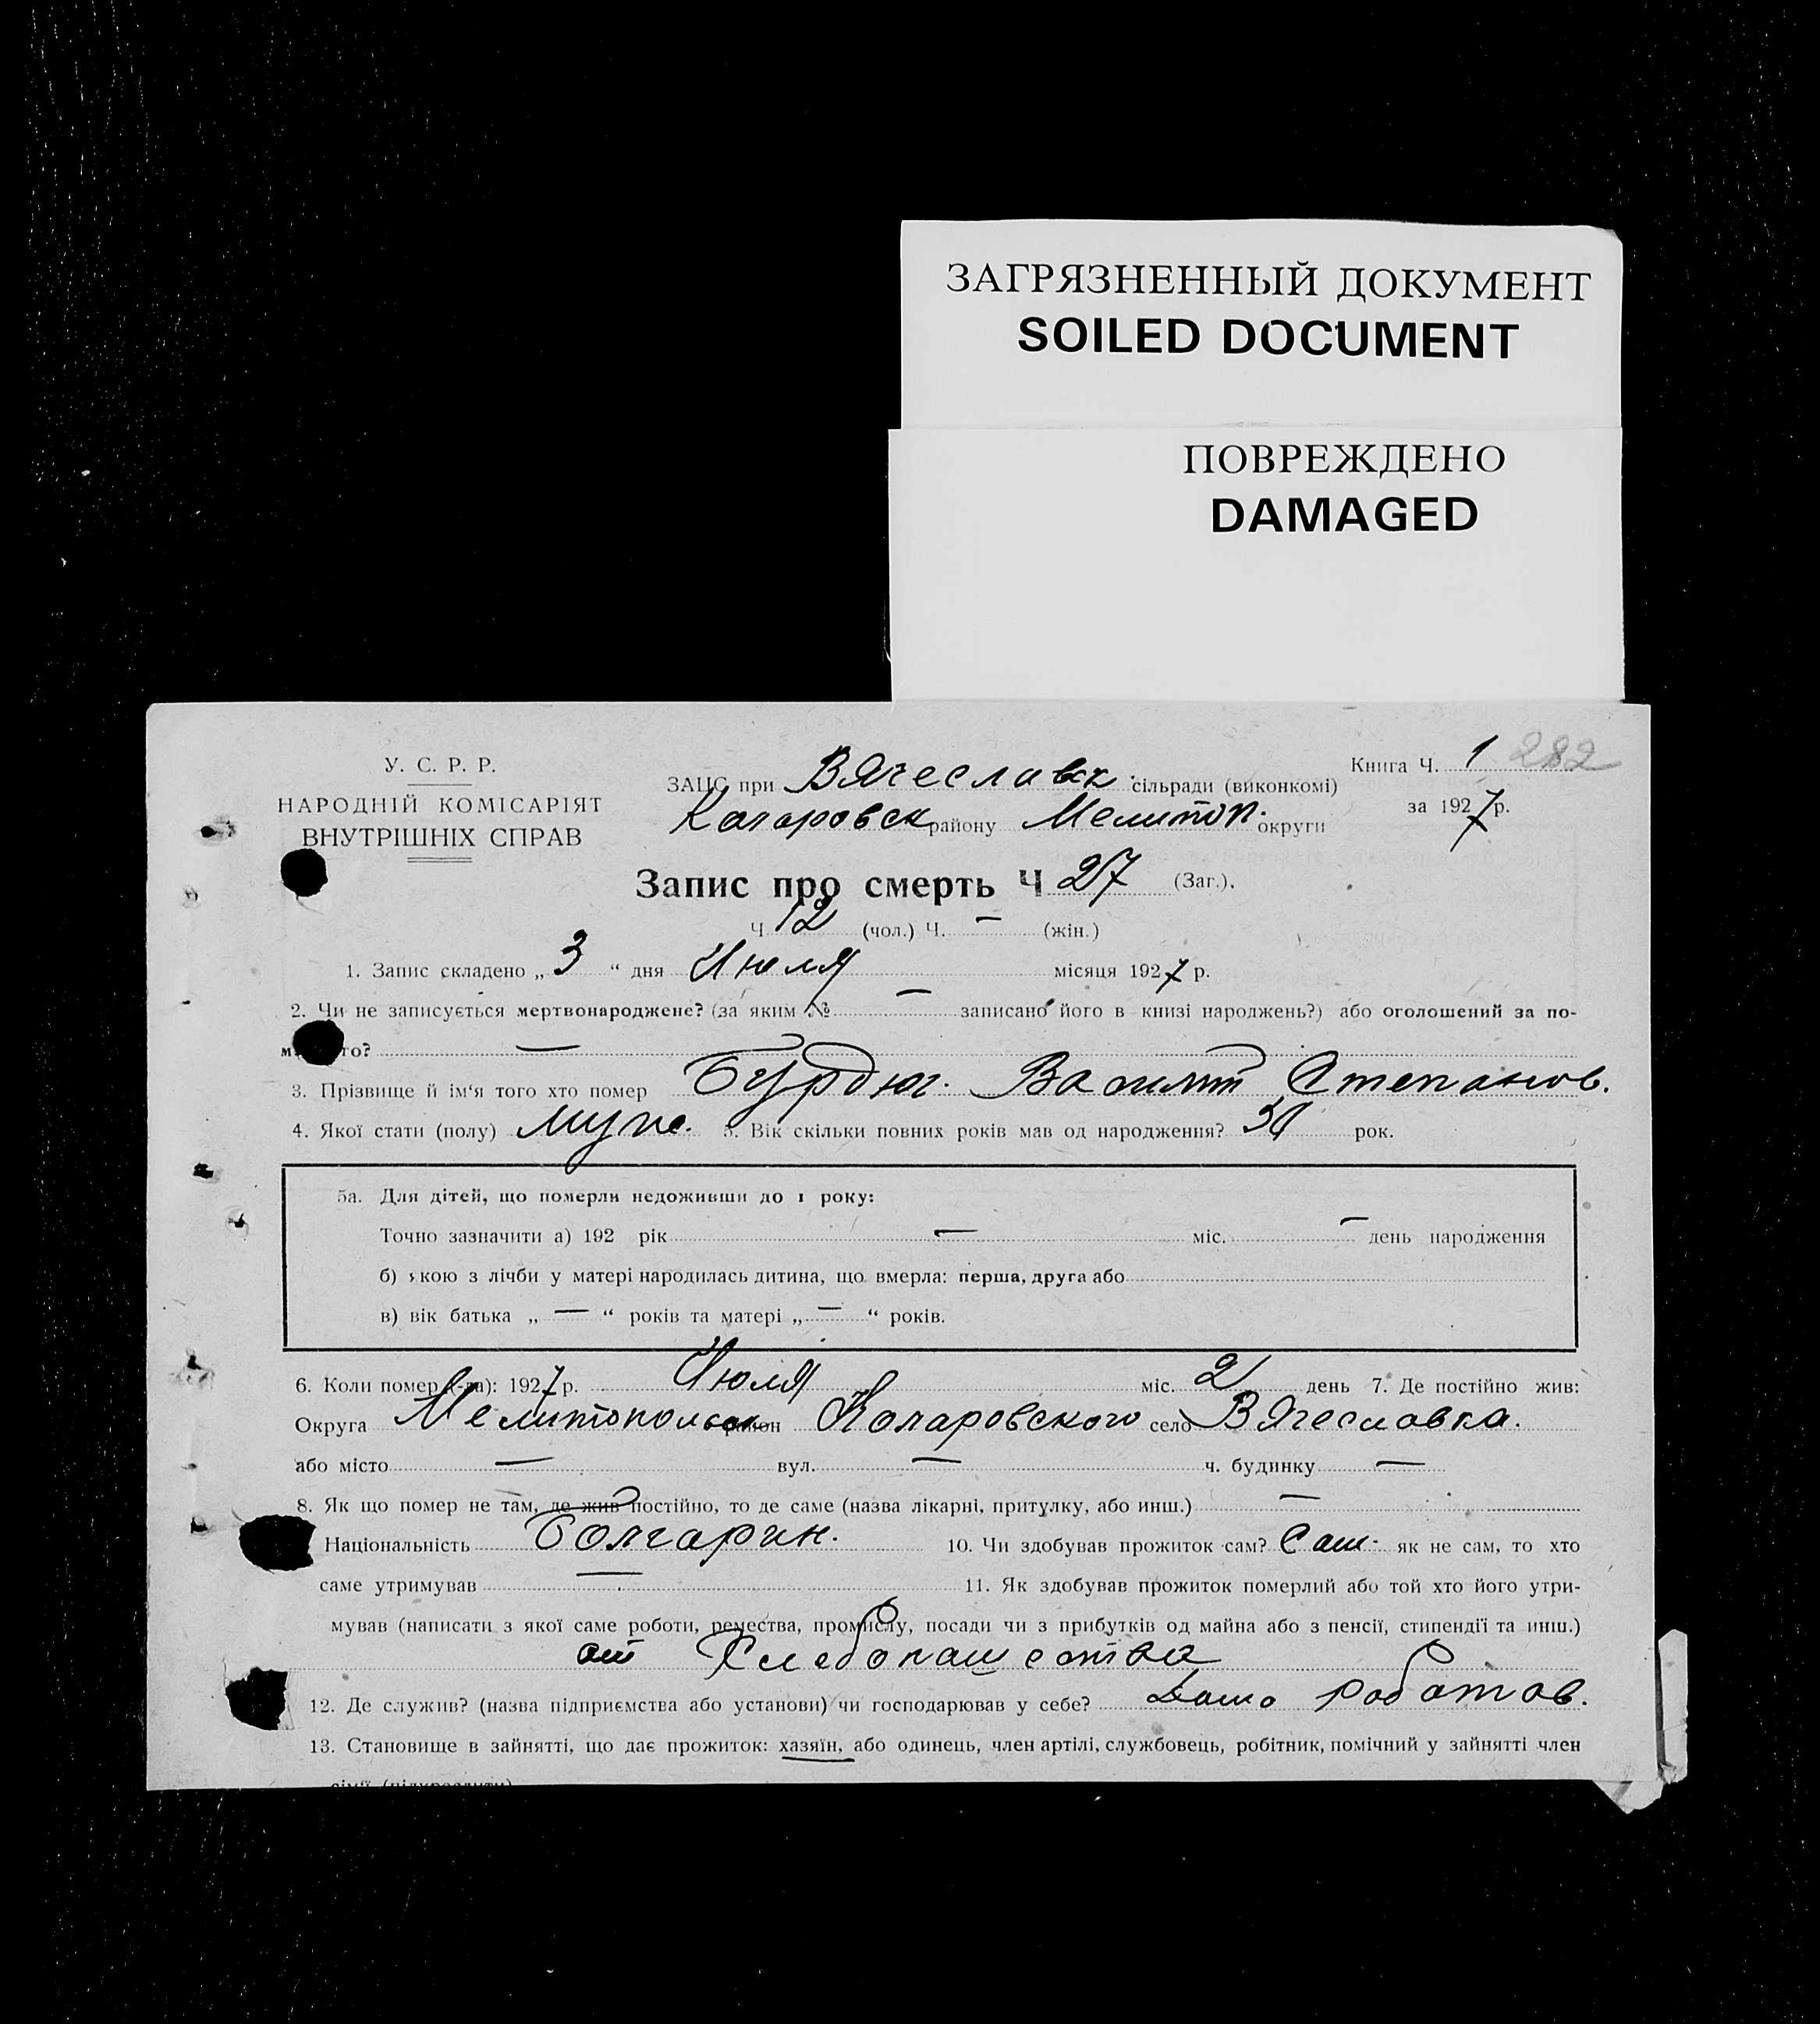 ЗАГРЯЗНЕННЫЙ ДОКУМЕНТ
SOILED DOCUMENT
ПОВРЕЖДЕНО
DAMAGED
У. С. Р. Р.
НАРОДНІЙ КОМІСАРІЯТ
ВНУТРІШНІХ СПРАВ
Книга Ч. 1 282
за 1927 р.
ЗАЦС при Вячеславск. сільради (виконкомі)
Коларовск району Мелитоп. округи
Запис про смерть Ч 27 (Заг.).
Ч 12 (чол.) Ч. — (жін.)
1. Запис складено „ 3 “ дня Июля місяця 1927 р.
2. Чи не записується мертвонароджене? (за яким № — записано його в книзі народжень?) або оголошений за по-
то? —
3. Прізвище й ім‘я того хто помер Бурдюг. Василий Степанов.
4. Якої стати (полу) муже. 5. Вік скільки повних років мав од народження? рок.
5а. Для дітей, що померли недоживши до 1 року:
Точно зазначити а) 192 рік — міс. — день народження
б) якою з лічби у матері народилась дитина, що вмерла: перша, друга або
в) вік батька „ — “ років та матері „ — “ років.
6. Коли помер (-ла): 1927 р. Июля міс. 2 день 7. Де постійно жив:
Округа Мелитопольск район Коларовского село Вячеславка.
або місто — вул. — ч. будинку —
8. Як що помер не там, де жив постійно, то де саме (назва лікарні, притулку, або инш.) —
Національність Болгарин. 10. Чи здобував прожиток сам? Сам. як не сам, то хто
саме утримував — 11. Як здобував прожиток померлий або той хто його утри-
мував (написати з якої саме роботи, ремества, промислу, посади чи з прибутків од майна або з пенсії, стипендії та инш.)
от Хлебопашества
12. Де служив? (назва підприємства або установи) чи господарював у себе? работав.
13. Становище в зайнятті, що дає прожиток: хазяїн, або одинець, член артілі, службовець, робітник, помічний у зайнятті член
сім‘ї (підкреслити)